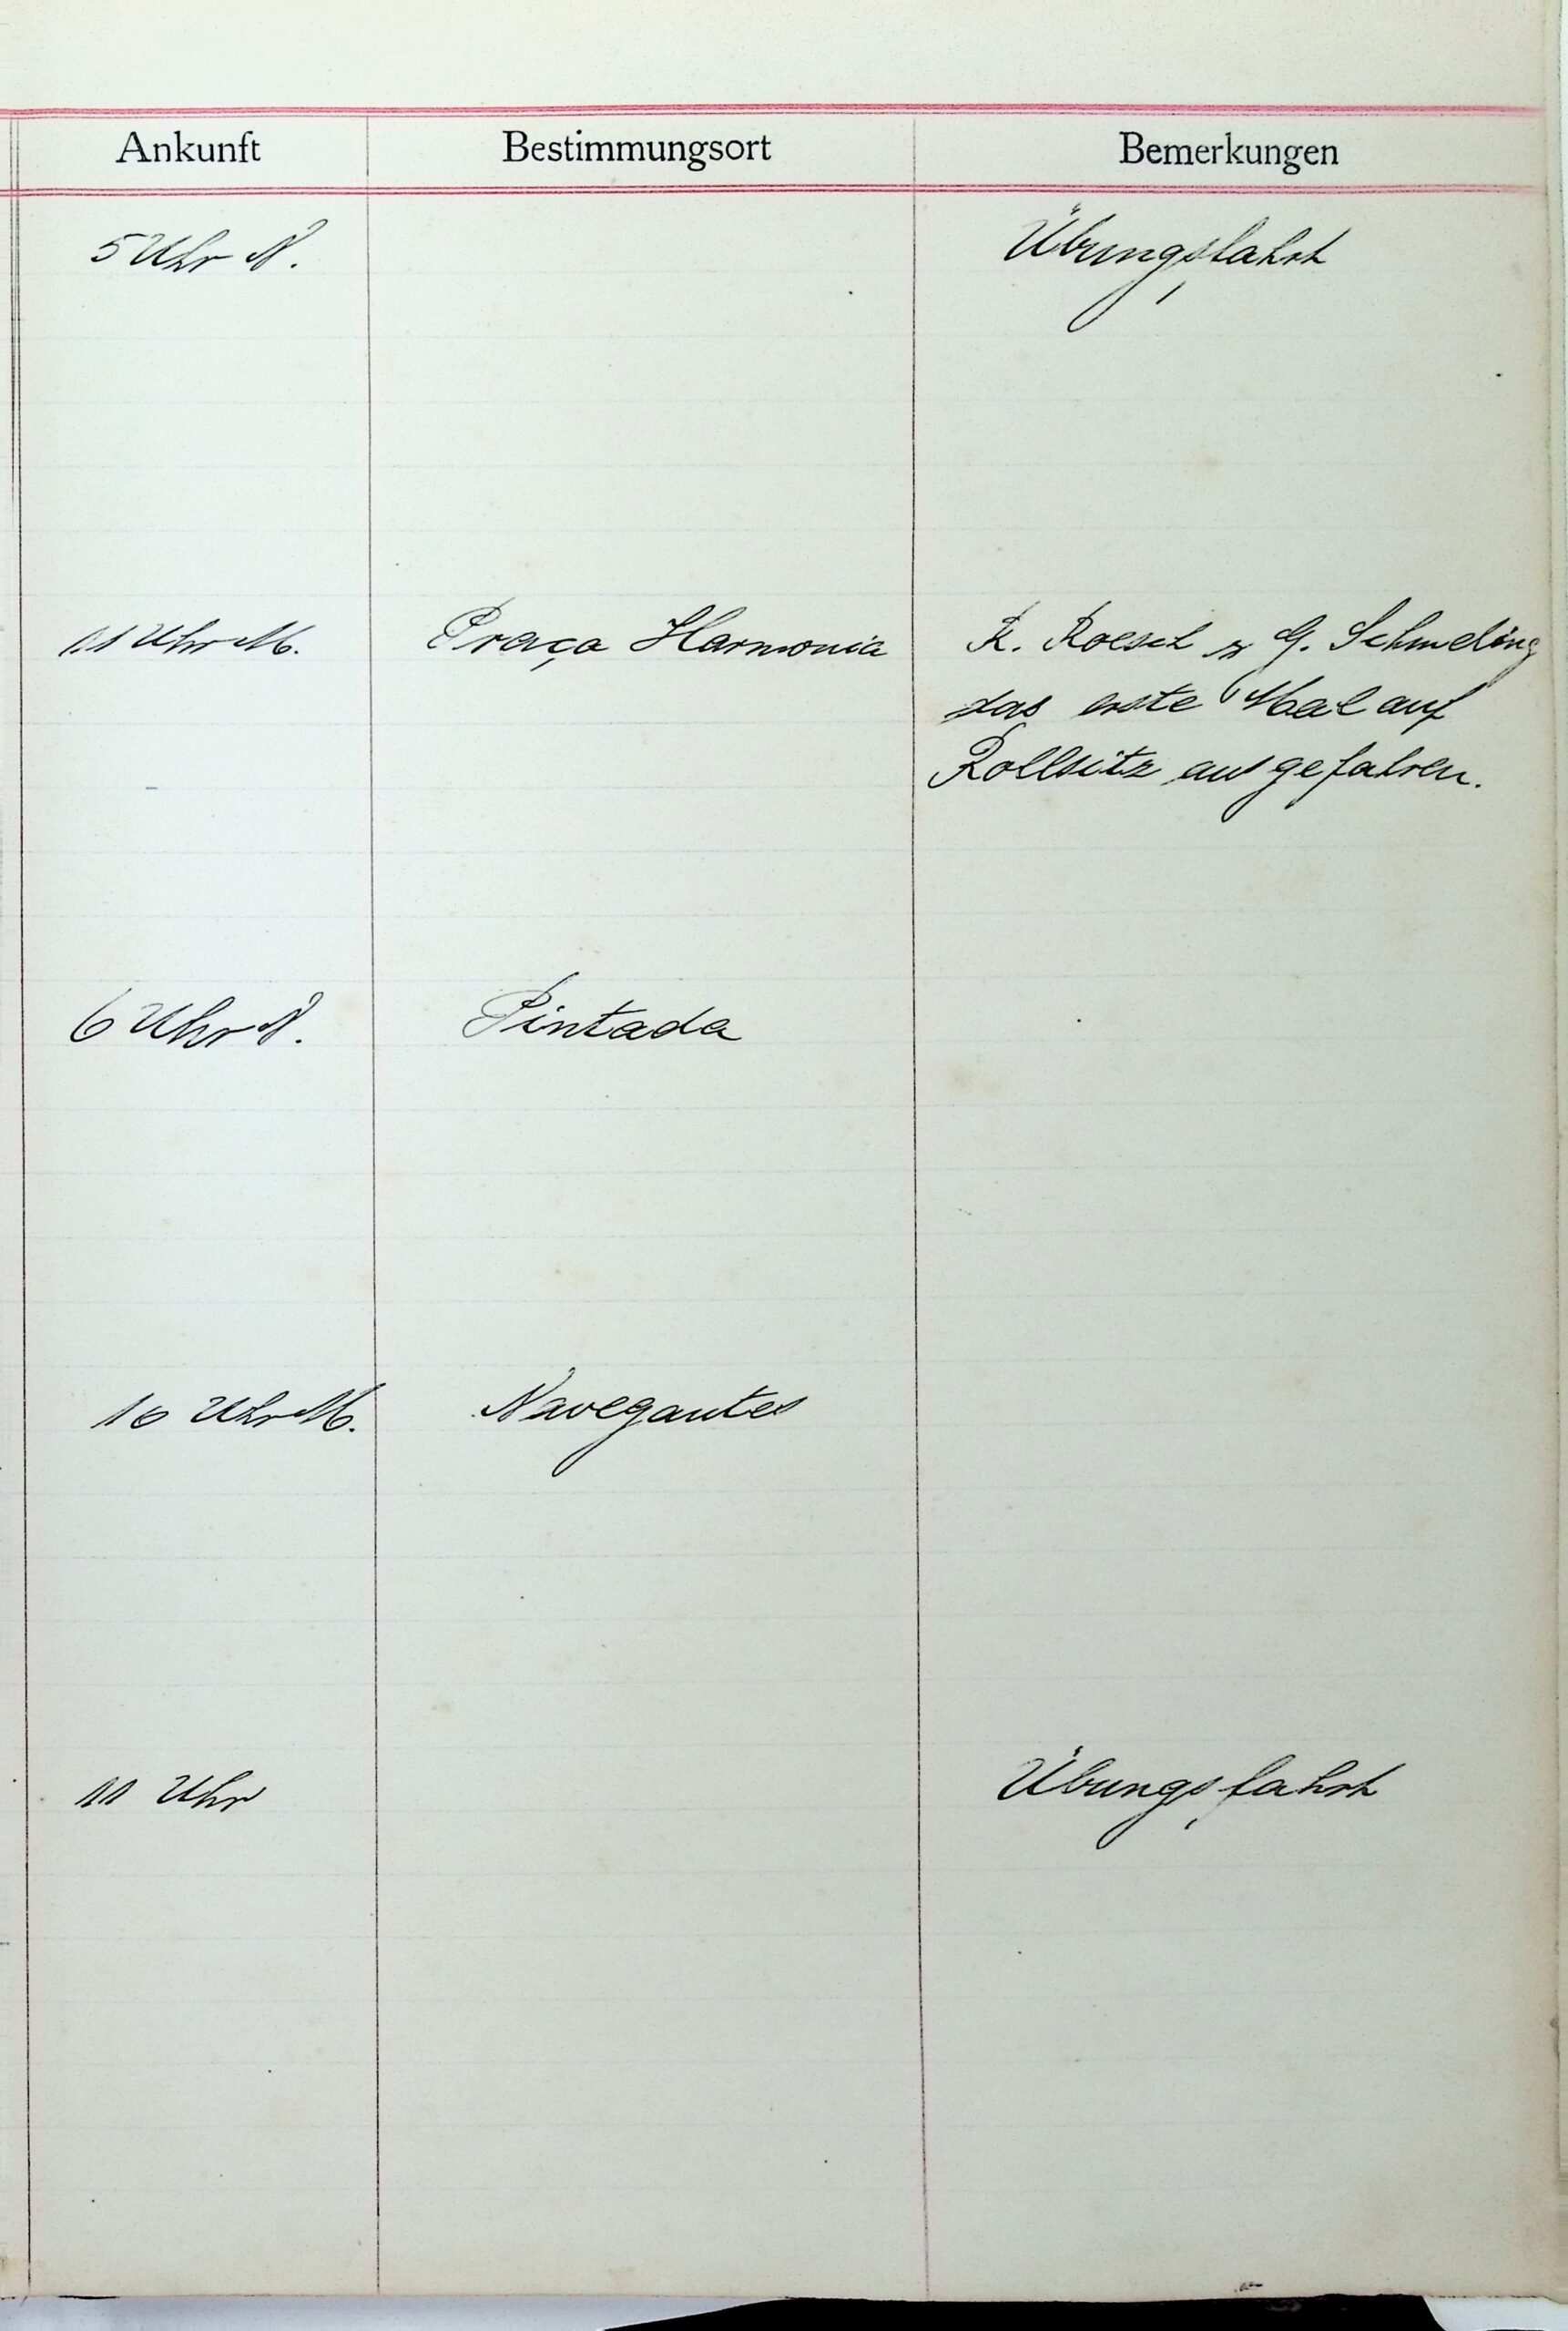 Ankunft Bestimmungsort Bemerkungen
5 Uhr N. Übungsfahrt
11 Uhr M. Praça Harmonia R. Roesch G. Schmeling
das erste Mal auf
Rollsitz ausgefahren.
6 Uhr N. Pintada
10 Uhr M. Navegantes
11 Uhr Übungsfahrt